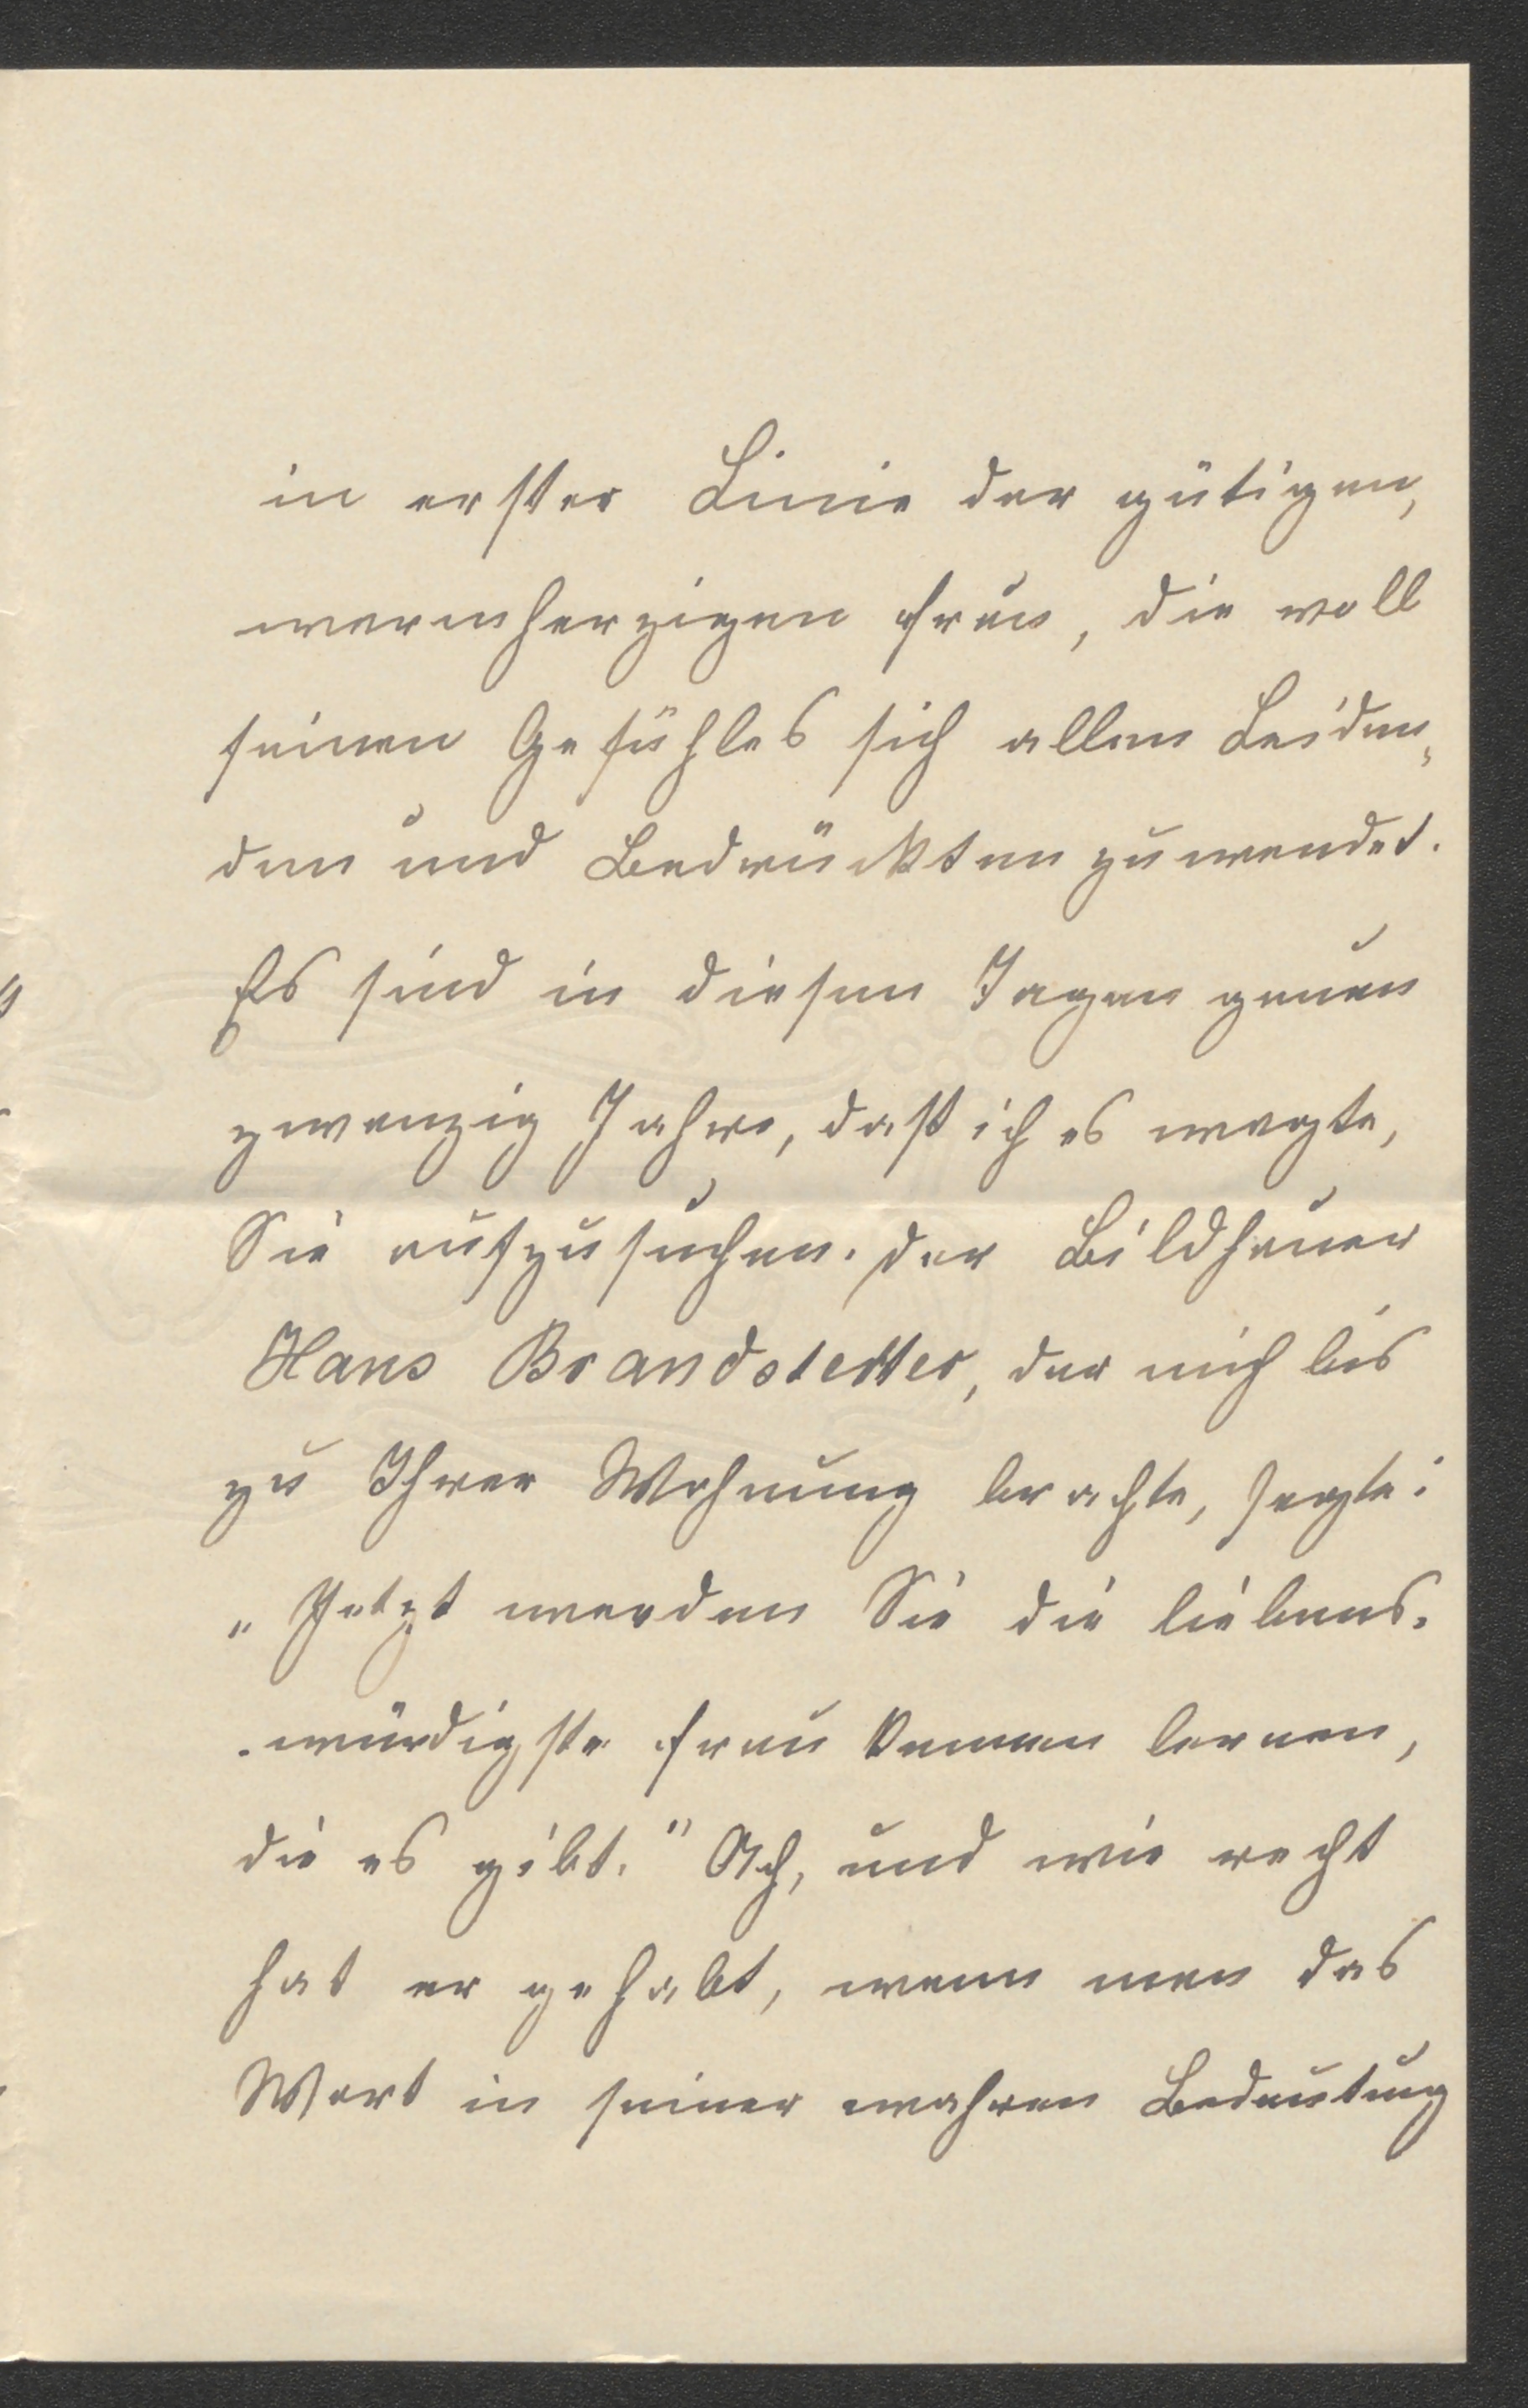 in erster Linie der gütigen,
warmherzigen Frau, die voll
feinen Gefühles sich allen Leiden-
den und Bedrückten zuwendet.
Es sind in diesen Tagen genau
zwanzig Jahre, daß ich es wagte,
Sie aufzusuchen. Der Bildhauer
Hans Brandstetter, der mich bis
zu Ihrer Wohnung brachte, sagte:
„Jetzt werden Sie die liebens-
-würdigste Frau kennen lernen,
die es gibt." Ach, und wie recht
hat er gehabt, wenn man das
Wort in seiner wahren Bedeutung